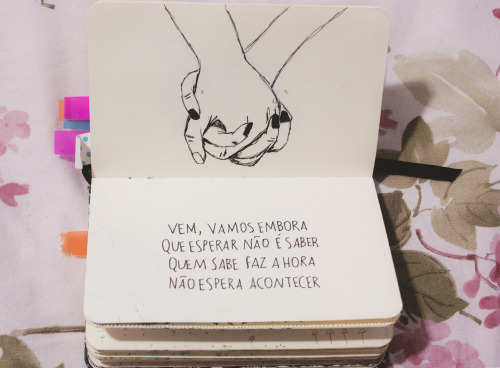 VEM, VAMOS EMBORA
QUE ESPERAR NÃO É SABER
QUEM SABE FAZ A HORA
NÃO ESPERA ACONTECER